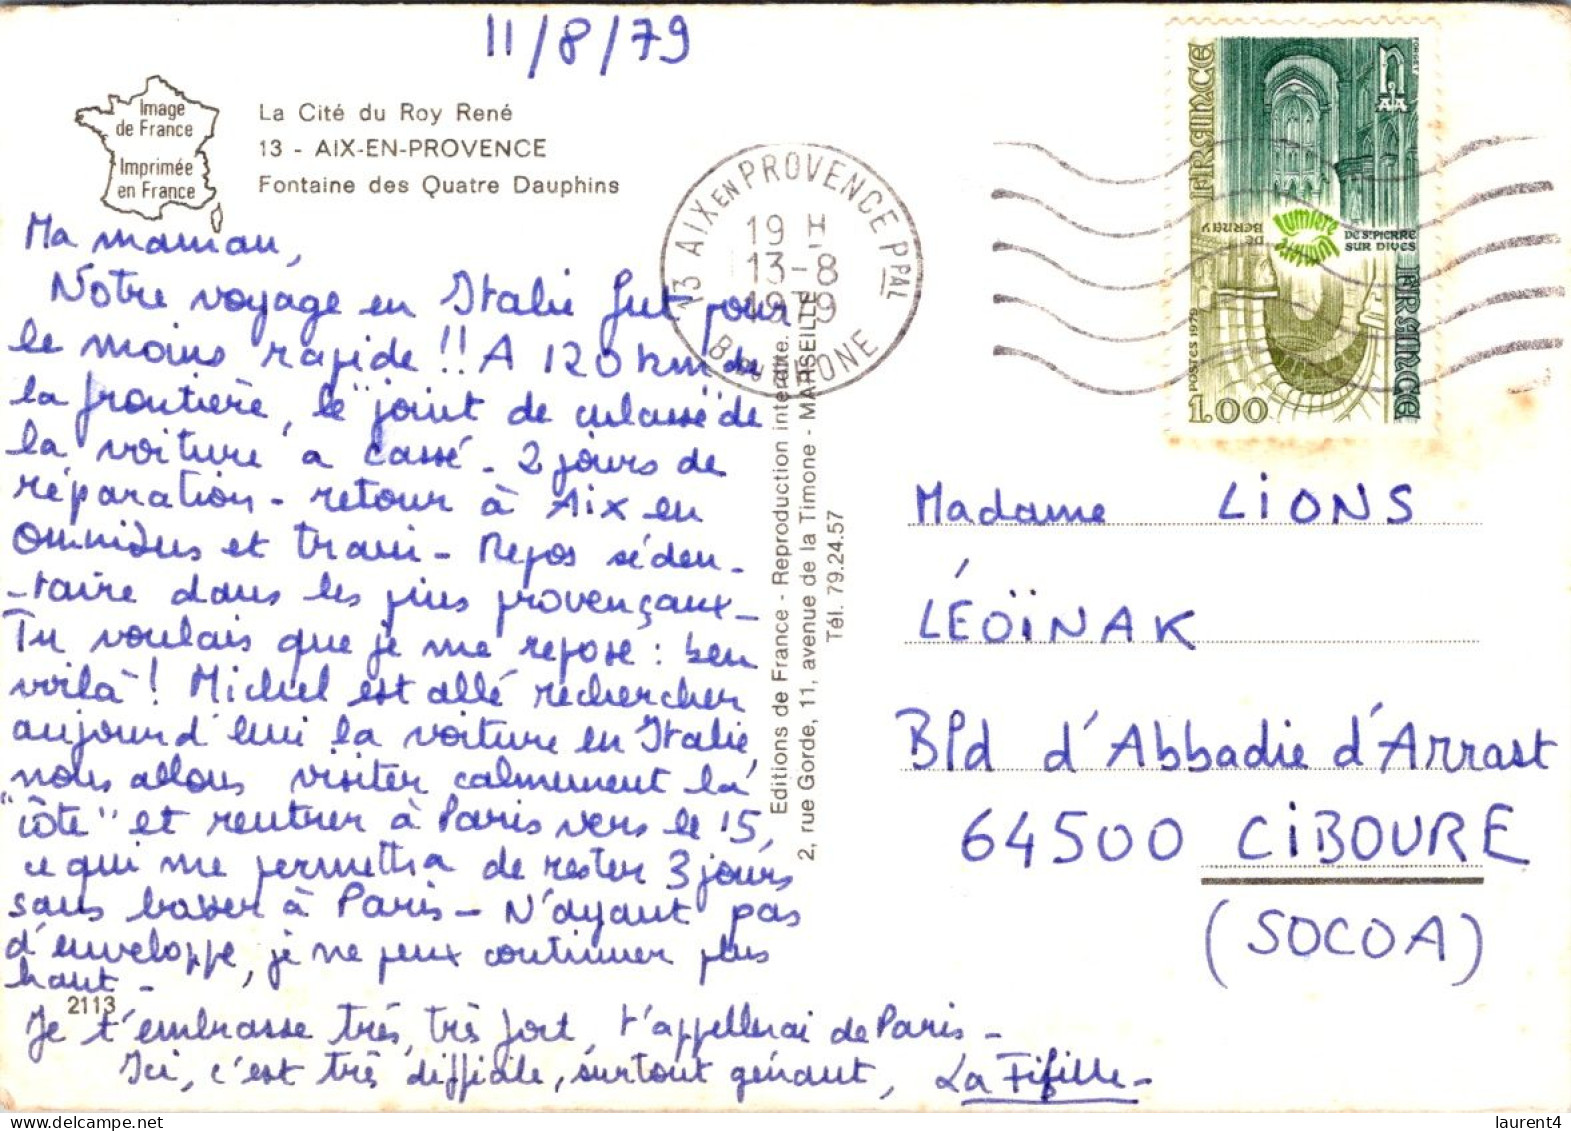 11/8/79
Image
de France
Imprimée
en France
La Cité du Roy René
13 - AIX-EN-PROVENCE
Fontaine des Quatre Dauphins
Ma maman,
Notre voyage en Italie fut pour
le moins rapide !! A 120 km de
la frontière, le "joint de culasse" de
la voiture a cassé - 2 jours de
réparation - retour à Aix en
omnibus et train - Repos séden-
-taire dans les pins provençaux -
Tu voulais que je me repose : ben
voilà ! Michel est allé rechercher
aujourd'hui la voiture en Italie,
nous allons visiter calmement la
"côte" et rentrer à Paris vers le 15,
ce qui me permettra de rester 3 jours
sans bosser à Paris - N'ayant pas
d'enveloppe, je ne peux continuer plus
haut -
2113
Je t'embrasse très, très fort, t'appellerai de Paris -
Ici, c'est très difficile, surtout gênant, La Fifille -
Editions de France - Reproduction interdite.
2, rue Gorde, 11, avenue de la Timone - MARSEILLE
Tél. 79.24.57
13 AIX EN PROVENCE PPAL
19 H
13-8
1979
B. DU RHONE
FRANCE
FORGET
lumière
DE ST PIERRE
SUR DIVES
lumière
DE
BERNAY
FRANCE
POSTES 1979
1.00
Madame LIONS
LÉOÏNAK
BPd d'Abbadie d'Arrast
64500 CIBOURE
(SOCOA)
laurent4